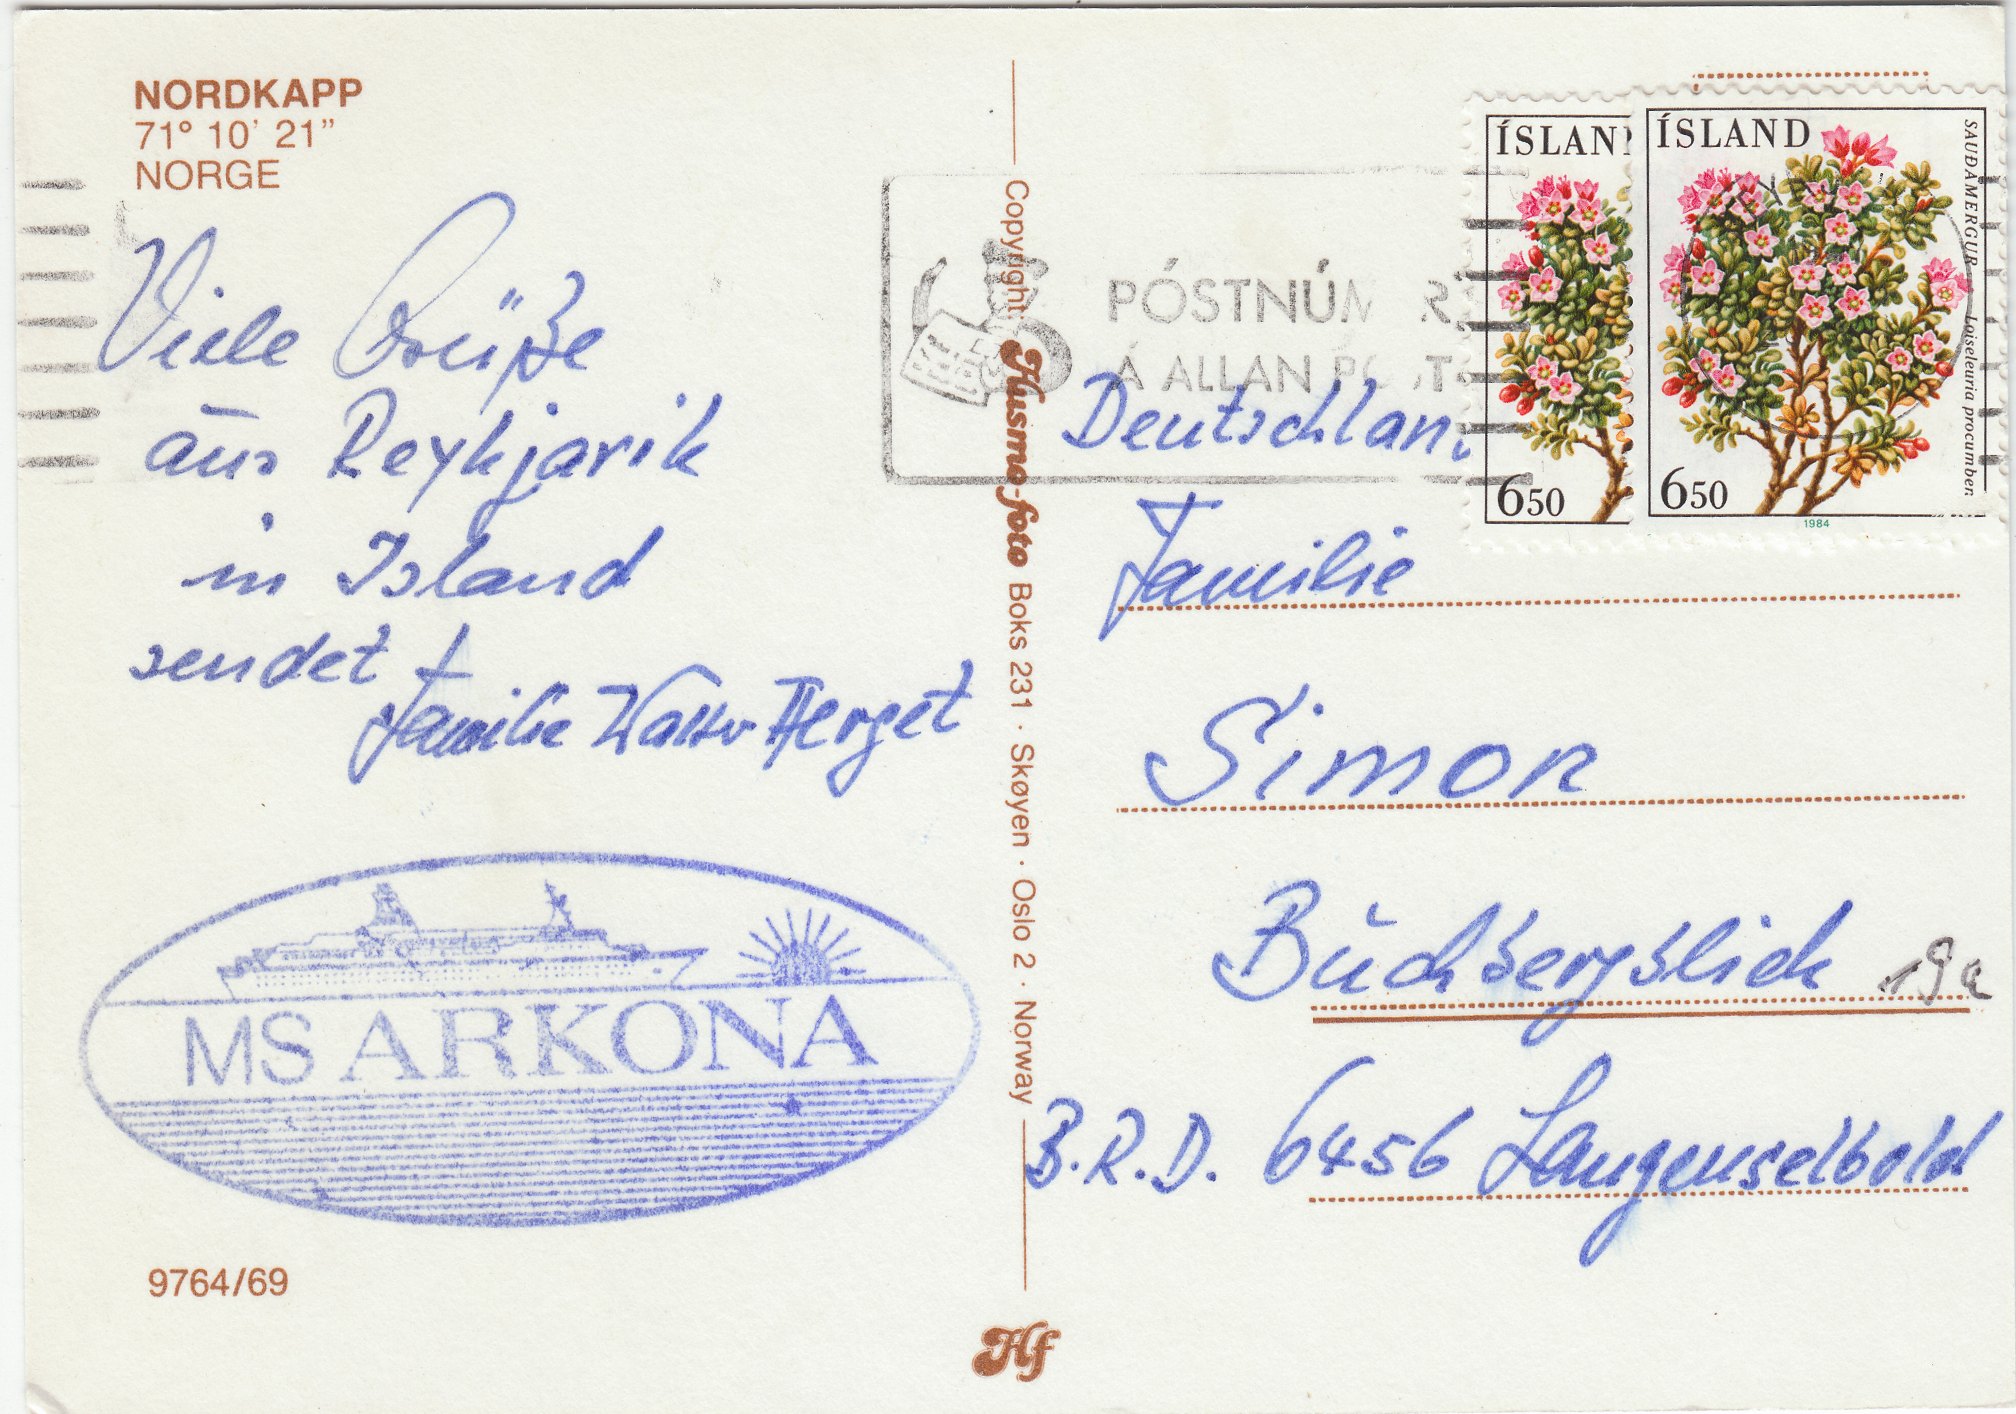 NORDKAPP
71° 10' 21"
NORGE
Viele Grüße
aus Reykjavik
in Island
sendet
Familie Walter Herget
MS ARKONA
9764/69
Copyright Husmo-foto Boks 231 · Skøyen · Oslo 2 · Norway
Hf
PÓSTNÚM R
Á ALLAN P ST
ÍSLAN
650
ÍSLAND
SAUÐAMERGUR Loiseleuria procumben
650
1984
Deutschlan
Familie
Simon
Buchbergblick 19a
B.R.D. 6456 Langenselbold